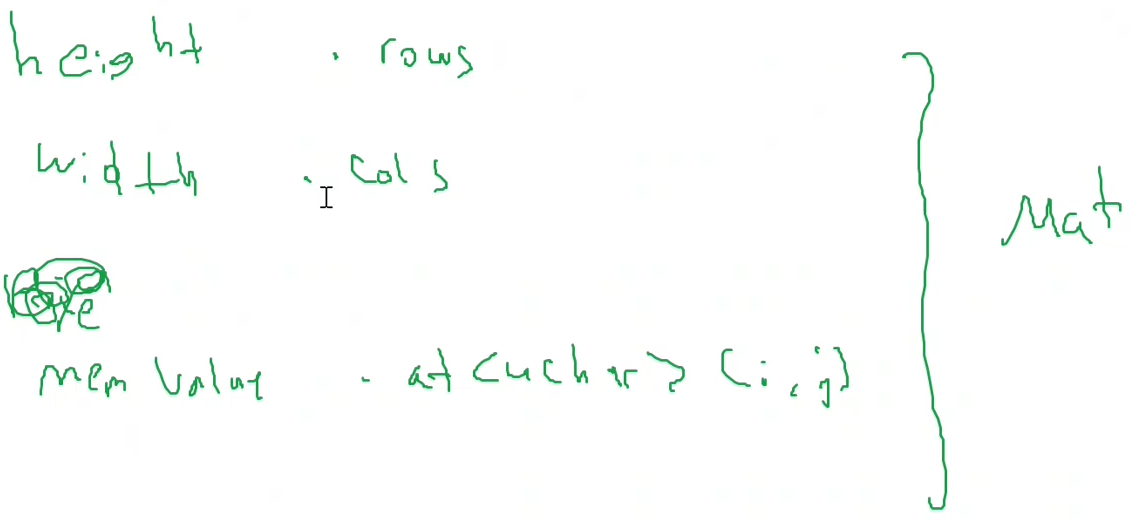 height .rows
width .cols
mem value .at<uchar>(i,j)
Mat